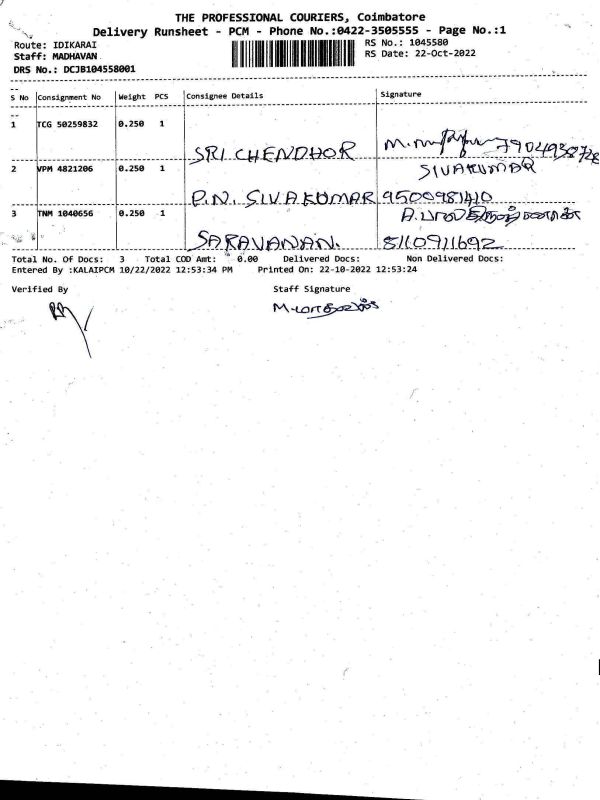 THE PROFESSIONAL COURIERS, Coimbatore
Delivery Runsheet - PCM - Phone No.:0422-3505555 - Page No.:1
Route: IDIKARAI
RS No.: 1045580
Staff: MADHAVAN
RS Date: 22-Oct-2022
DRS No.: DCJB104558001
S No Consignment No Weight PCS Consignee Details Signature
1 TCG 50259832 0.250 1
SRI CHENDHOR
2 VPM 4821206 0.250 1 SIVAKUMAR
P.N. SIVAKUMAR 9500981410
3 TNM 1040656 0.250 1
SARAVANAN. 8110911692
Total No. Of Docs: 3 Total COD Amt: 0.00 Delivered Docs: Non Delivered Docs:
Entered By :KALAIPCM 10/22/2022 12:53:34 PM Printed On: 22-10-2022 12:53:24
Verified By Staff Signature